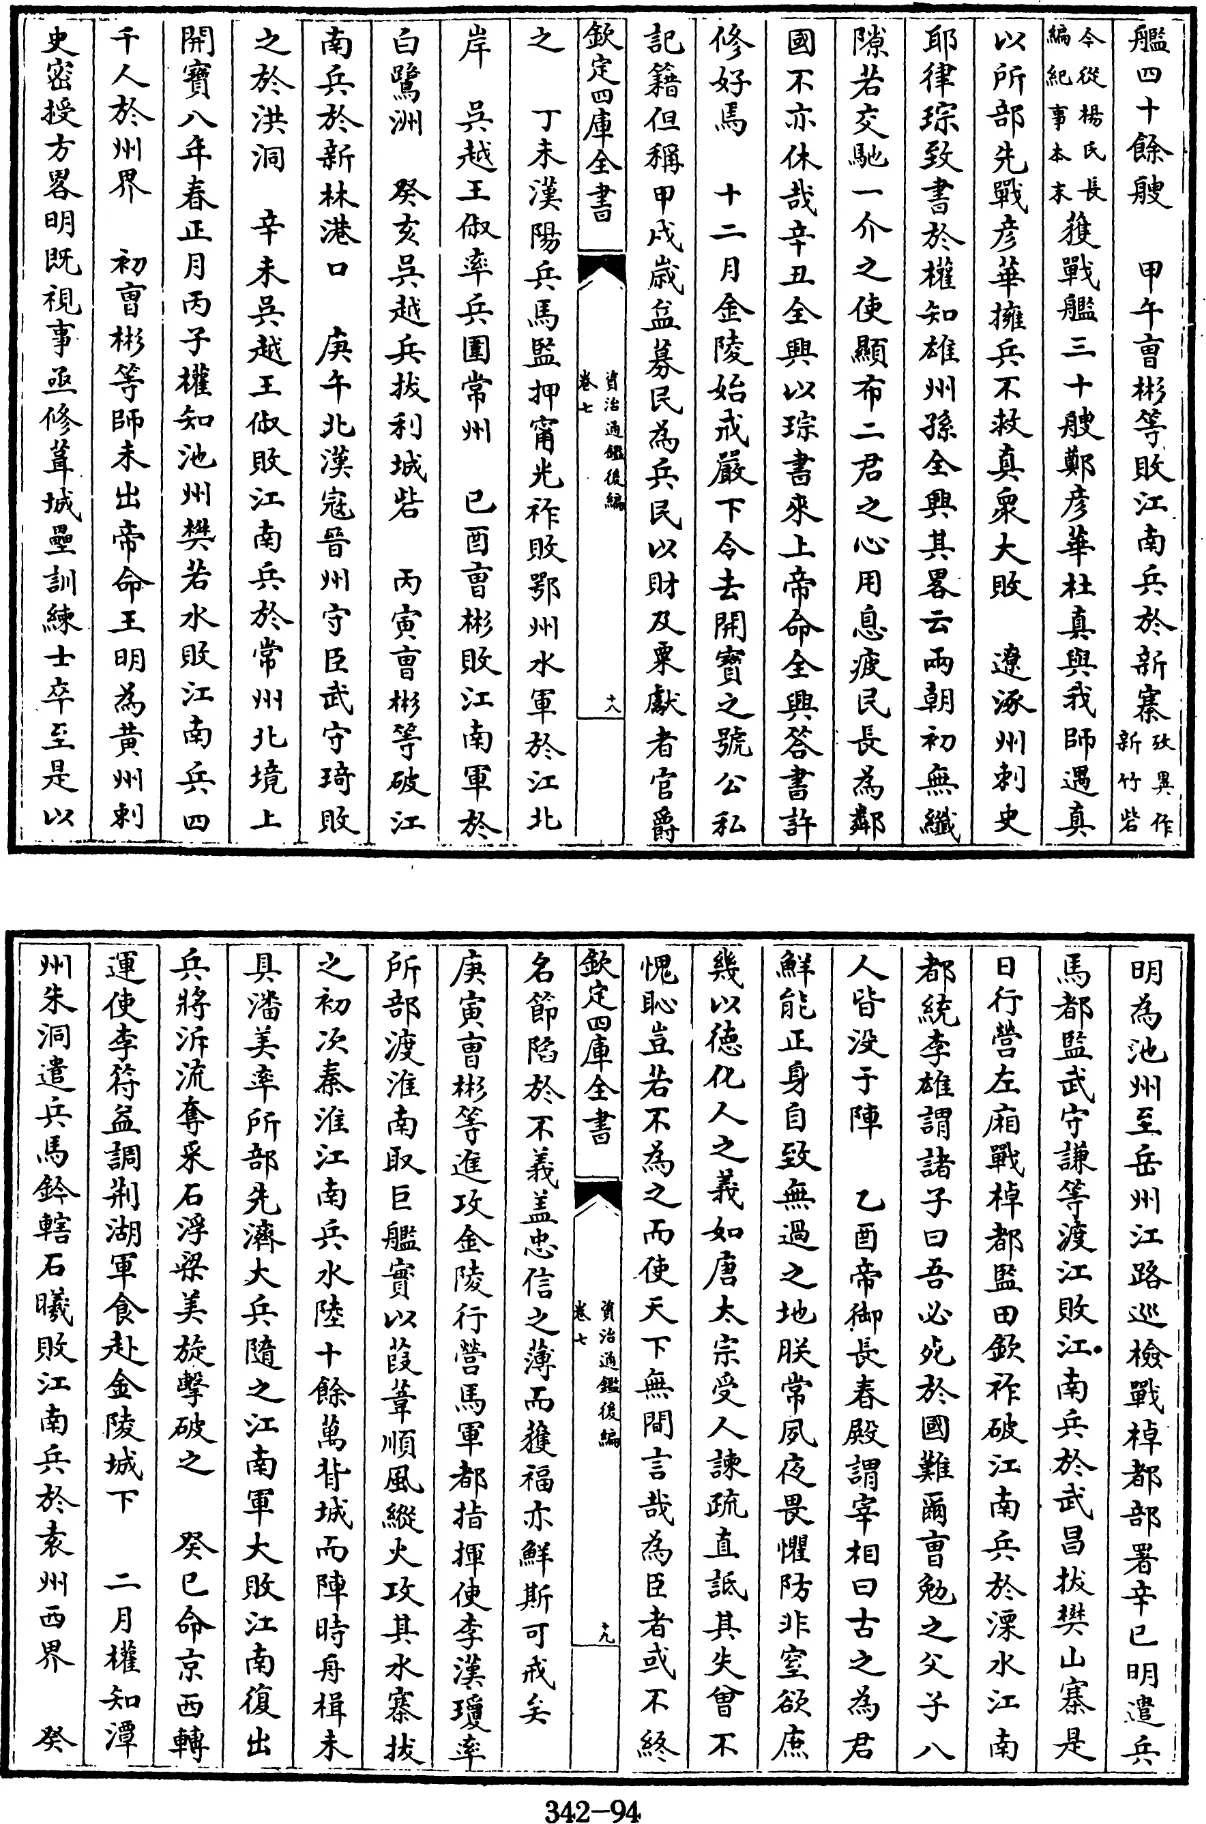 艦四十餘艘　甲午曺彬等敗江南兵於新寨攷異作新竹砦
今從楊氏長編紀事本末獲戰艦三十艘鄭彦華杜真與我師遇真
以所部先戰彦華擁兵不救真衆大敗　遼涿州刺史
耶律琮致書於權知雄州孫全興其畧云兩朝初無纖
隙若交馳一介之使顯布二君之心用息疲民長為鄰
國不亦休哉辛丑全興以琮書來上帝命全興答書許
修好焉　十二月金陵始戒嚴下令去開寳之號公私
記籍但稱甲戌歲益募民為兵民以財及粟獻者官爵
欽定四庫全書　資治通鑑後編卷七　十八
之　丁未漢陽兵馬監押甯光祚敗鄂州水軍於江北
岸　吳越王俶率兵圍常州　己酉曺彬敗江南軍於
白鷺洲　癸亥吳越兵拔利城砦　丙寅曺彬等破江
南兵於新林港口　庚午北漢寇晉州守臣武守琦敗
之於洪洞　辛未吳越王俶敗江南兵於常州北境上
開寳八年春正月丙子權知池州樊若水敗江南兵四
千人於州界　初曺彬等師未出帝命王明為黄州刺
史密授方畧明既視事亟修葺城壘訓練士卒至是以
明為池州至岳州江路巡檢戰棹都部署辛巳明遣兵
馬都監武守謙等渡江敗江南兵於武昌拔樊山寨是
日行營左廂戰棹都監田欽祚破江南兵於溧水江南
都統李雄謂諸子曰吾必死於國難爾曺勉之父子八
人皆没于陣　乙酉帝御長春殿謂宰相曰古之為君
鮮能正身自致無過之地朕常夙夜畏懼防非窒欲庶
幾以德化人之義如唐太宗受人諫疏直詆其失曾不
愧恥豈若不為之而使天下無間言哉為臣者或不終
欽定四庫全書　資治通鑑後編卷七　十九
名節陷於不義盖忠信之薄而獲福亦鮮斯可戒矣
庚寅曺彬等進攻金陵行營馬軍都指揮使李漢瓊率
所部渡淮南取巨艦實以葭葦順風縱火攻其水寨拔
之初次秦淮江南兵水陸十餘萬背城而陣時舟楫未
具潘美率所部先濟大兵隨之江南軍大敗江南復出
兵將泝流奪采石浮梁美旋擊破之　癸巳命京西轉
運使李符益調荆湖軍食赴金陵城下　二月權知潭
州朱洞遣兵馬鈐轄石曦敗江南兵於袁州西界　癸
342-94